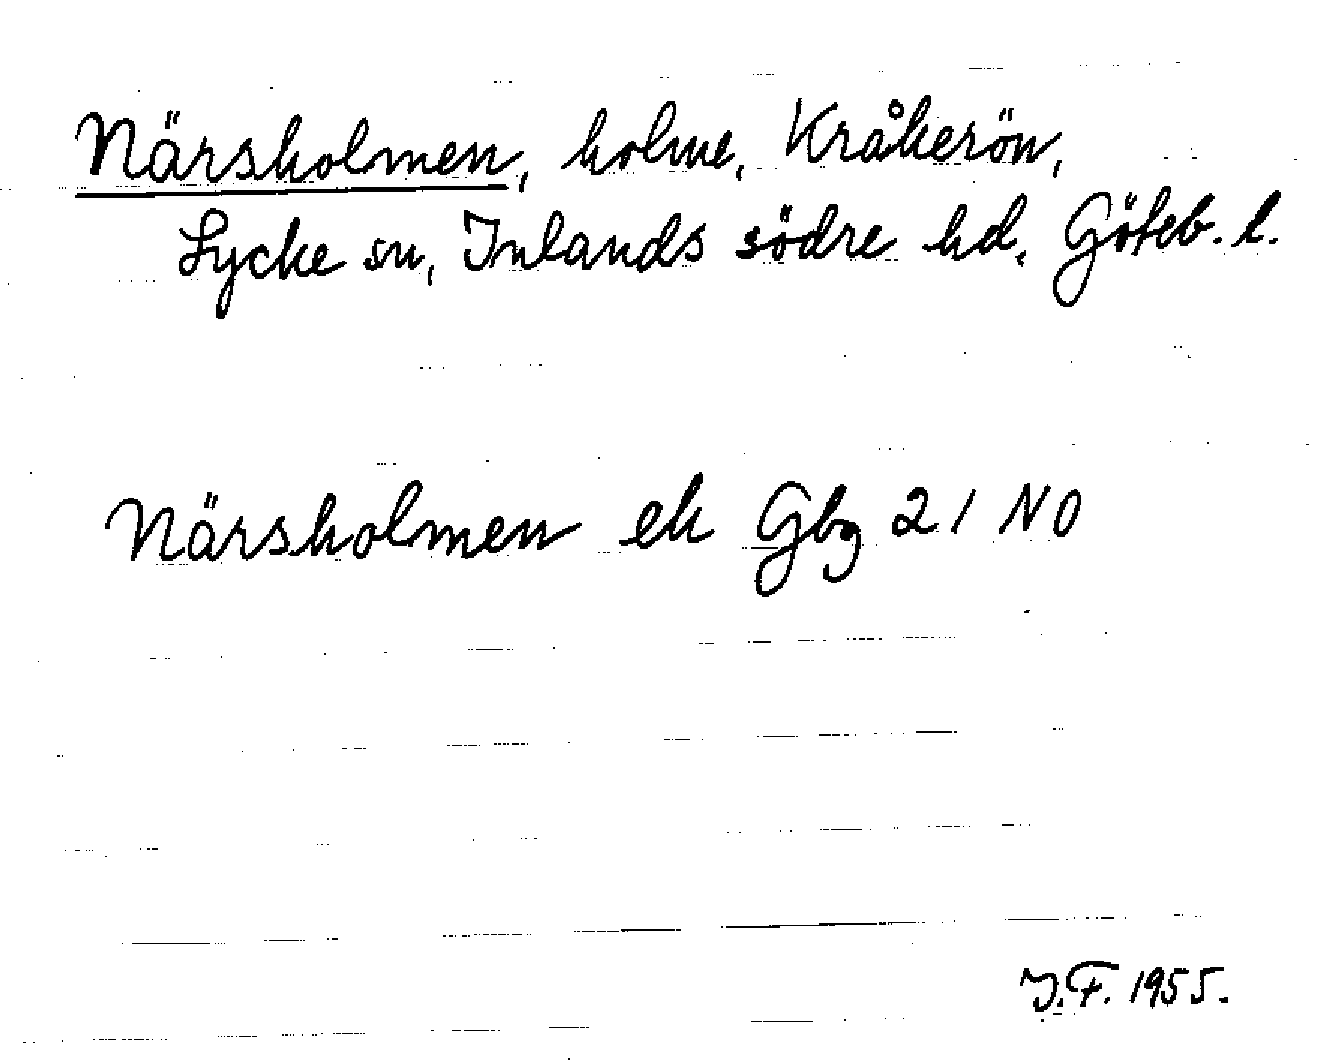 Närsholmen, holme, Kråkerön,
Lycke sn, Inlands södre hd, Göteb. l.
Närsholmen ek Gbg 21 NO
J.F. 1955.